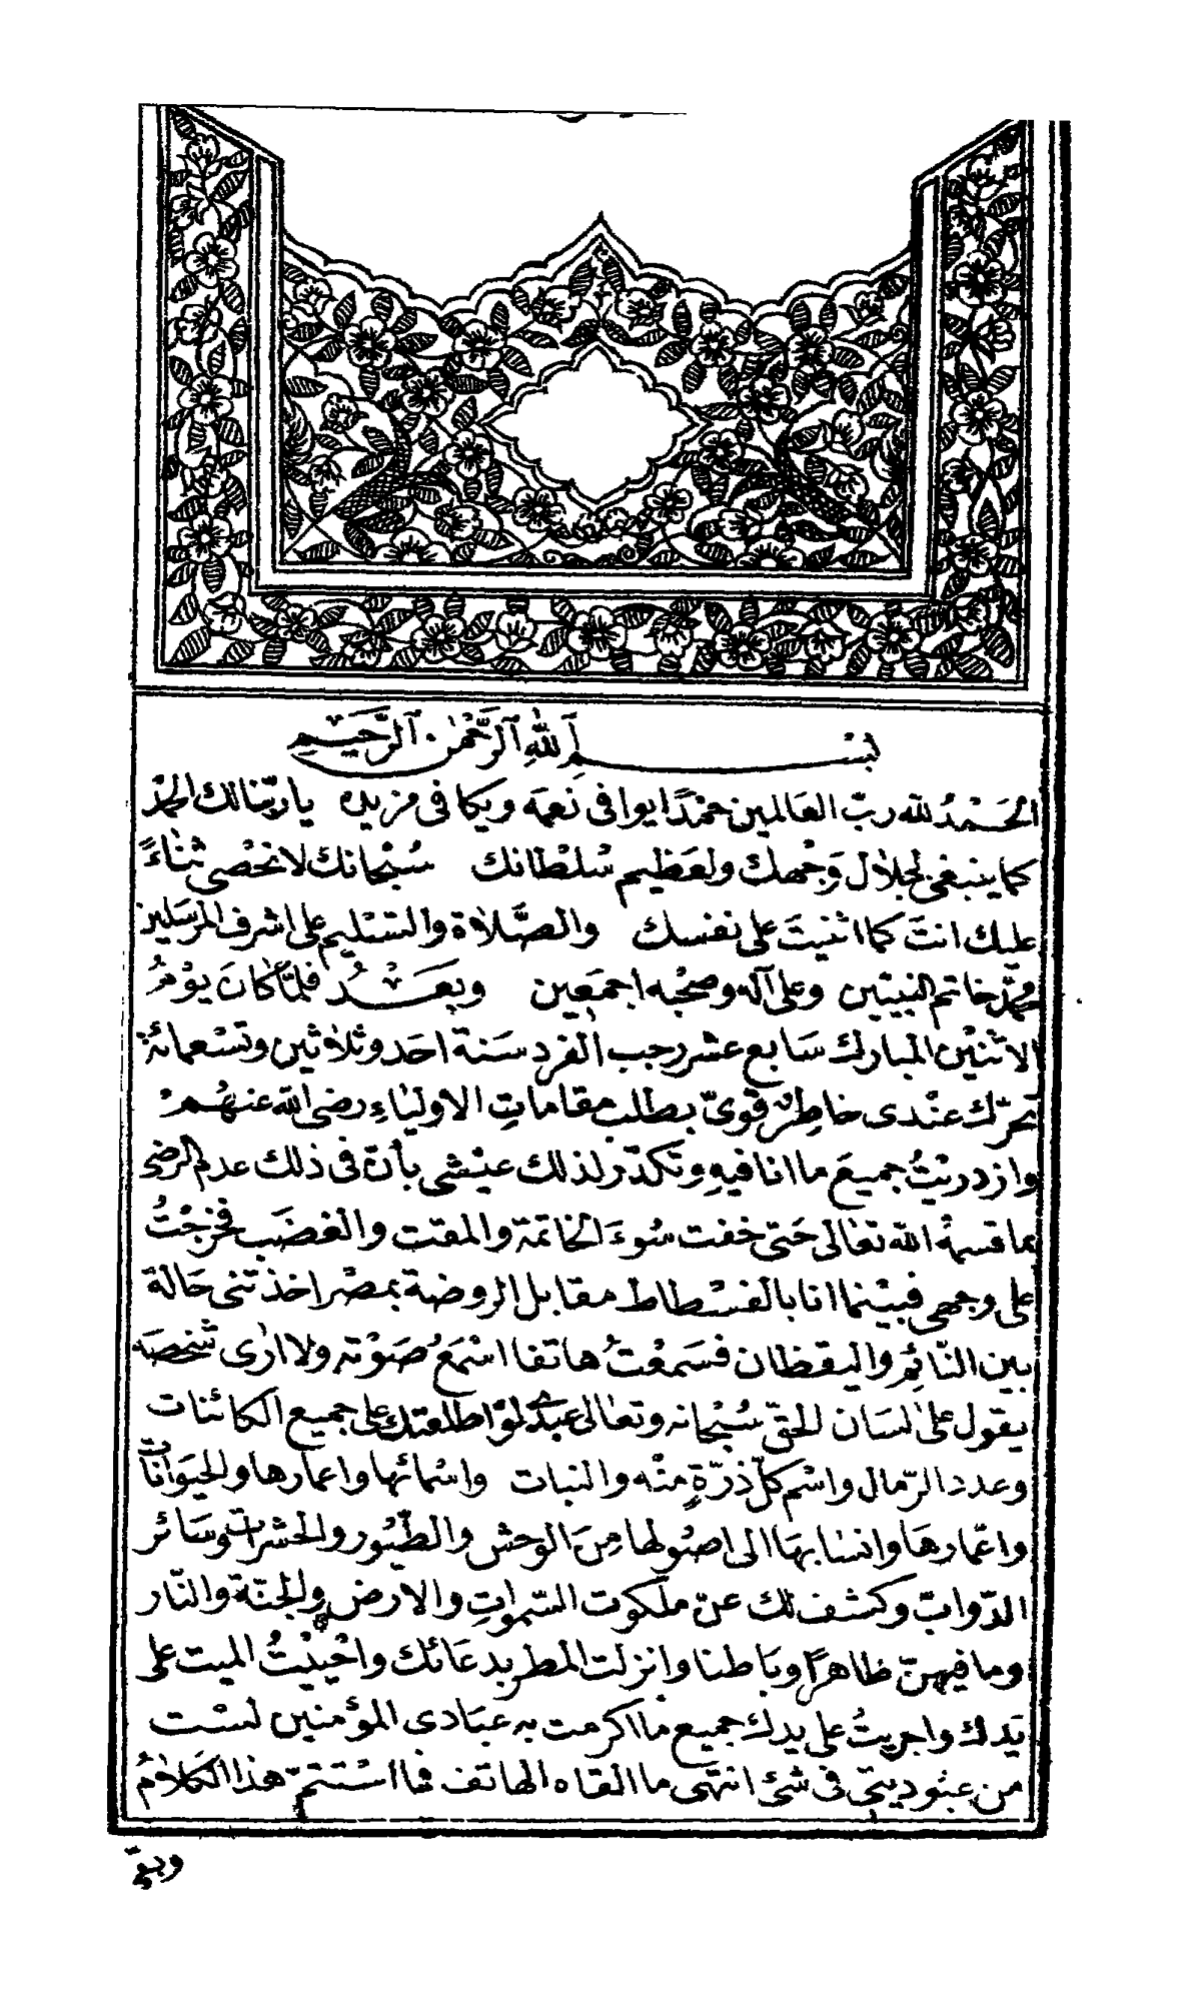 بسم الله الرحمن الرحيم
الحَمْدُ لله ربّ العالمين حمْدًا يوافى نعمَه ويكافى مزيده يا ربّنا لك الحمْد
كما ينبغى لجلال وَجْهك ولعَظيم سُلطانك سُبْحانك لا نحْصى ثناءً
عليك انتَ كما اثنيتَ على نفسك والصَّلاة والتسْليم على اشرف المرسَلين
محمَّد خاتم النبيّين وعلى آله وصحْبه اجمَعين وبَعَــدُ فلمّا كانَ يوْمُ
الاثنيْن المبارك سَابع عشر رجب الفرد سَنة احَد وثلاثين وتسْعمائة
تحرّك عنْدى خاطِر قوىّ بطلب مقامات الاولياءِ رضى الله عنهُمْ
وازدريْتُ جميعَ ما انا فيهِ وتكدّر لذلك عيْشى بأنّ فى ذلك عدم الرضى
بما قسمهُ الله تعالى حَتى خفت سُوءَ الخاتمة والمقت والغضَب فخرجْتُ
على وجهى فبيْنما انا بالفسْطاط مقابل الروضة بمصْر اخذتنى حَالة
بين النّائِم واليقظان فسَمعْتُ هاتفا اسْمَعُ صَوْته ولا ارى شخصَه
يقول على لسَان الحقّ سُبْحانه وتعالى عبدى لوْ اطلعتك على جميع الكائنات
وعدد الرّمال واسْم كلّ ذرّةٍ منْه والنبات واسْمائها واعمارها والحيَوانات
واعْمارهَا وانسابهَا الى اصُولها مِنَ الوحْش والطّيُور والحشرات وسَائر
الدّوابّ وكشف لك عنْ ملكوت السّمواتِ والارض والجنّة والنّار
وما فيهنّ ظاهرًا وبَاطنا وانزلت المطر بدعَائك واحْييْتُ الميت على
يَدك واجريتُ على يدك جميع ما اكرمت به عبَادى المؤمنين لسْت
من عبُوديتى فى شئ انتهى ما القاه الهاتف فما اسْتتمّ هذا الكَلامُ